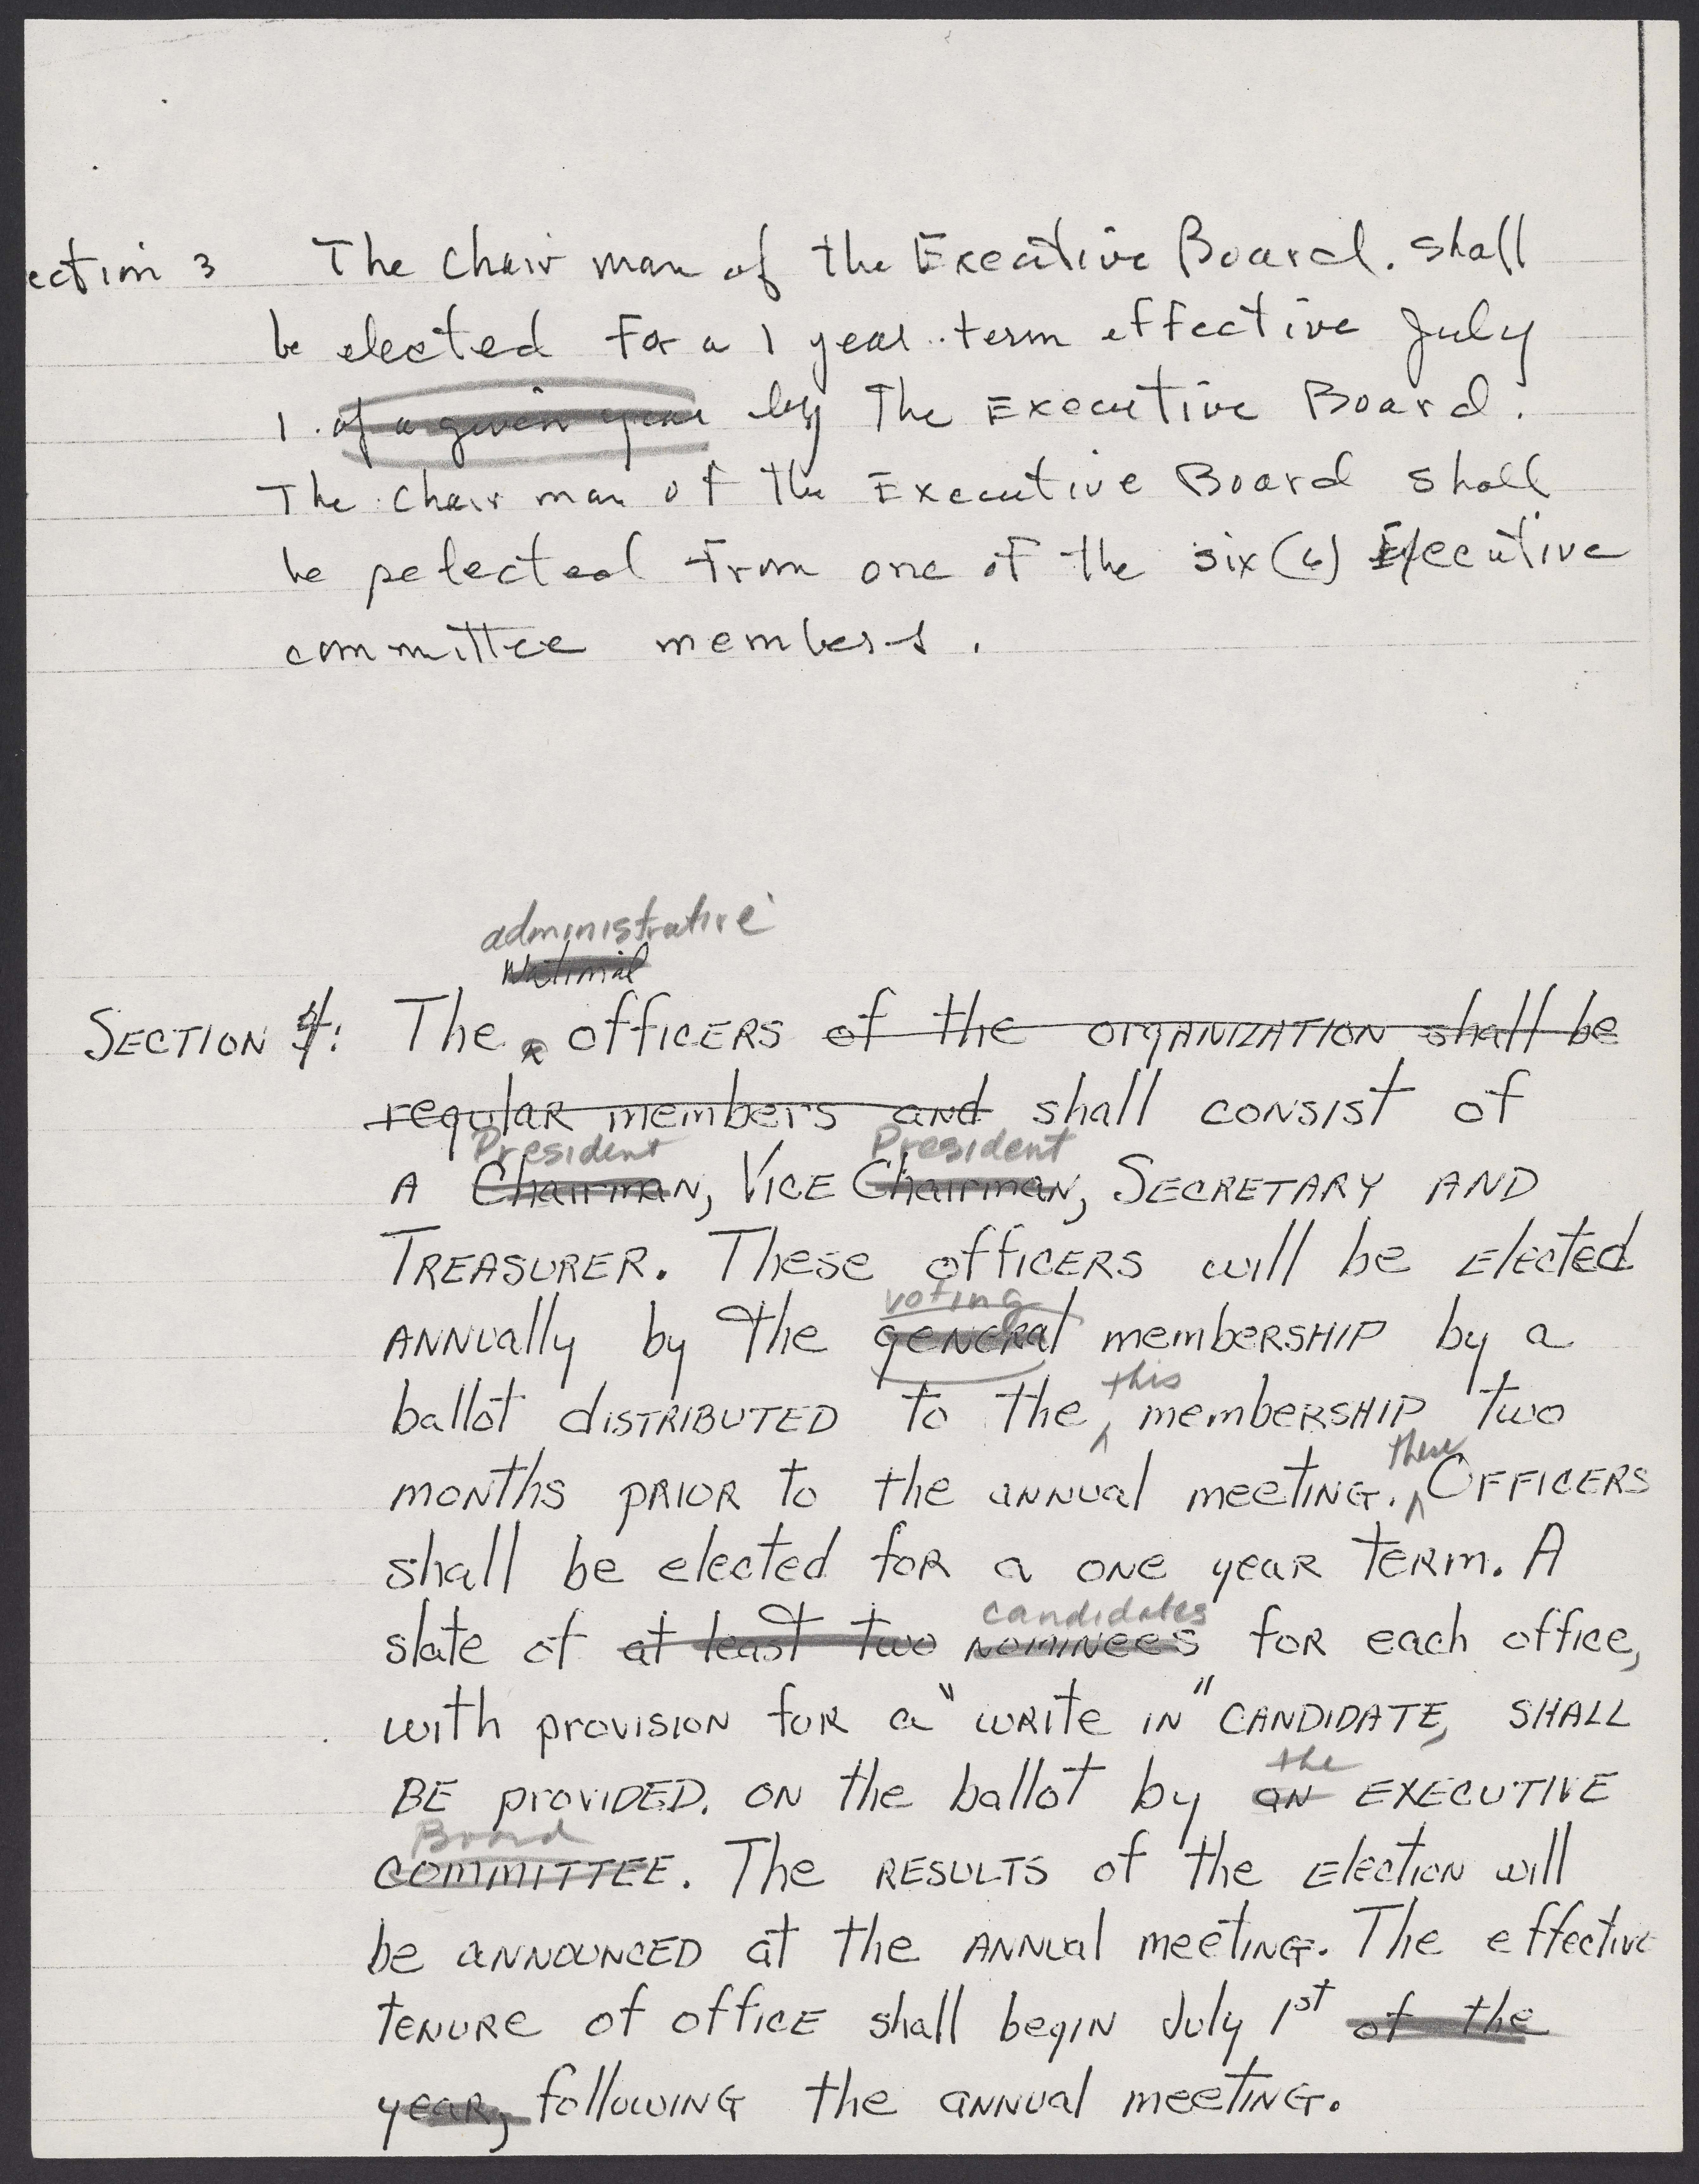 ection 3 The chair man of the Executive Board. shall
be elected for a 1 year term effective July
1. of a given year by The Executive Board.
The chair man of the Executive Board shall
be selected from one of the six (6) Executive
committee members.
administrative
National
SECTION 4: The officers of the organization shall be
regular members and shall consist of
President President
A Chairman, Vice Chairman, Secretary AND
Treasurer. These officers will be elected
voting
annually by the general membership by a
this
ballot distributed to the membership two
these
months prior to the annual meeting. Officers
shall be elected for a one year term. A
candidates
slate of at least two nominees for each office,
with provision for a "write in" candidate, SHALL
the
BE provided. on the ballot by an EXECUTIVE
Board
COMMITTEE. The RESULTS of the election will
be announced at the annual meeting. The effective
tenure of office shall begin July 1st of the
year, following the annual meeting.